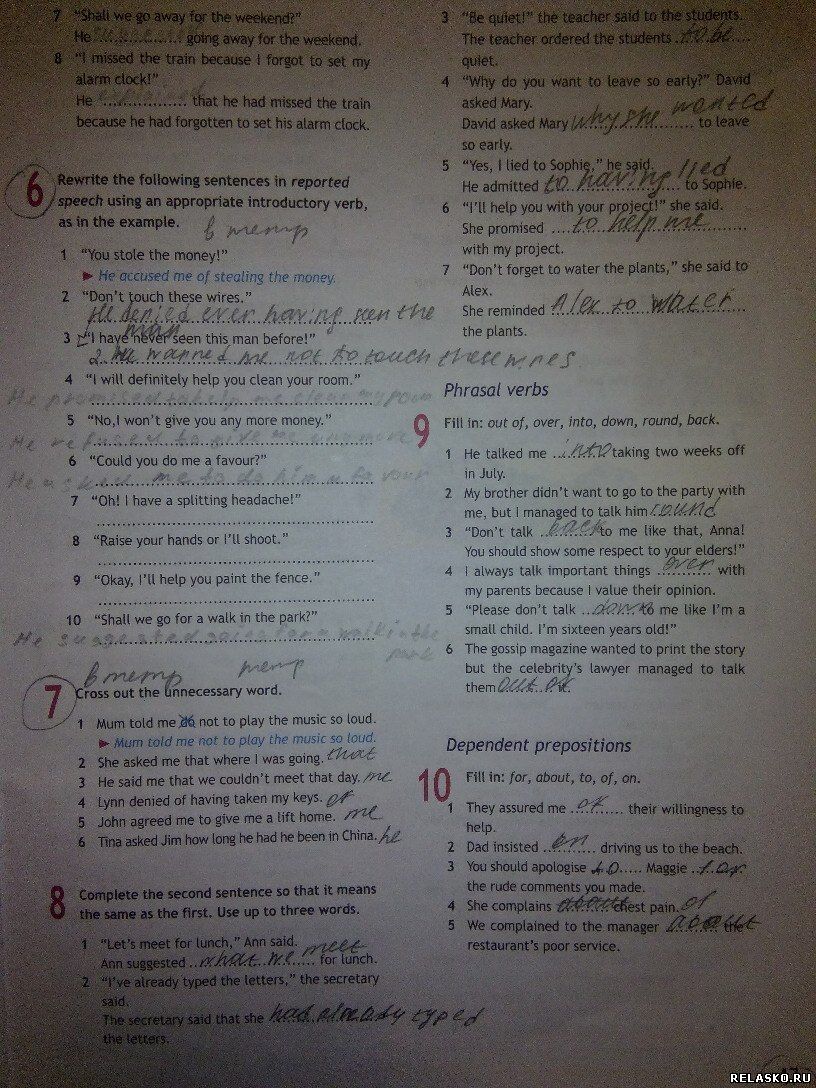 7 "Shall we go away for the weekend?"
He ............ going away for the weekend.
8 "I missed the train because I forgot to set my
alarm clock!"
He explained that he had missed the train
because he had forgotten to set his alarm clock.
6 Rewrite the following sentences in reported
speech using an appropriate introductory verb,
as in the example.
1 "You stole the money!"
▶ He accused me of stealing the money.
2 "Don't touch these wires."
He denied ever having seen the
man
3 "I have never seen this man before!"
2. He warned me not to touch these wires
4 "I will definitely help you clean your room."
He promised to help me clean my room
5 "No,I won't give you any more money."
He refused to give me any more
6 "Could you do me a favour?"
He asked me to do him a favour
7 "Oh! I have a splitting headache!"
8 "Raise your hands or I'll shoot."
9 "Okay, I'll help you paint the fence."
10 "Shall we go for a walk in the park?"
He suggested going for a walk in the
park
7 Cross out the unnecessary word.
1 Mum told me do not to play the music so loud.
▶ Mum told me not to play the music so loud.
2 She asked me that where I was going. that
3 He said me that we couldn't meet that day. me
4 Lynn denied of having taken my keys. of
5 John agreed me to give me a lift home. me
6 Tina asked Jim how long he had he been in China. he
8 Complete the second sentence so that it means
the same as the first. Use up to three words.
1 "Let's meet for lunch," Ann said.
Ann suggested what we meet for lunch.
2 "I've already typed the letters," the secretary
said.
The secretary said that she had already typed
the letters.
3 "Be quiet!" the teacher said to the students.
The teacher ordered the students to be
quiet.
4 "Why do you want to leave so early?" David
asked Mary.
David asked Mary why she wanted to leave
so early.
5 "Yes, I lied to Sophie," he said.
He admitted to having lied to Sophie.
6 "I'll help you with your project!" she said.
She promised to help me
with my project.
7 "Don't forget to water the plants," she said to
Alex.
She reminded Alex to water
the plants.
Phrasal verbs
9 Fill in: out of, over, into, down, round, back.
1 He talked me into taking two weeks off
in July.
2 My brother didn't want to go to the party with
me, but I managed to talk him round
3 "Don't talk back to me like that, Anna!
You should show some respect to your elders!"
4 I always talk important things over with
my parents because I value their opinion.
5 "Please don't talk down to me like I'm a
small child. I'm sixteen years old!"
6 The gossip magazine wanted to print the story
but the celebrity's lawyer managed to talk
them out of.
Dependent prepositions
10 Fill in: for, about, to, of, on.
1 They assured me of their willingness to
help.
2 Dad insisted on driving us to the beach.
3 You should apologise to Maggie for
the rude comments you made.
4 She complains about chest pain. of
5 We complained to the manager about the
restaurant's poor service.
RELASKO.RU